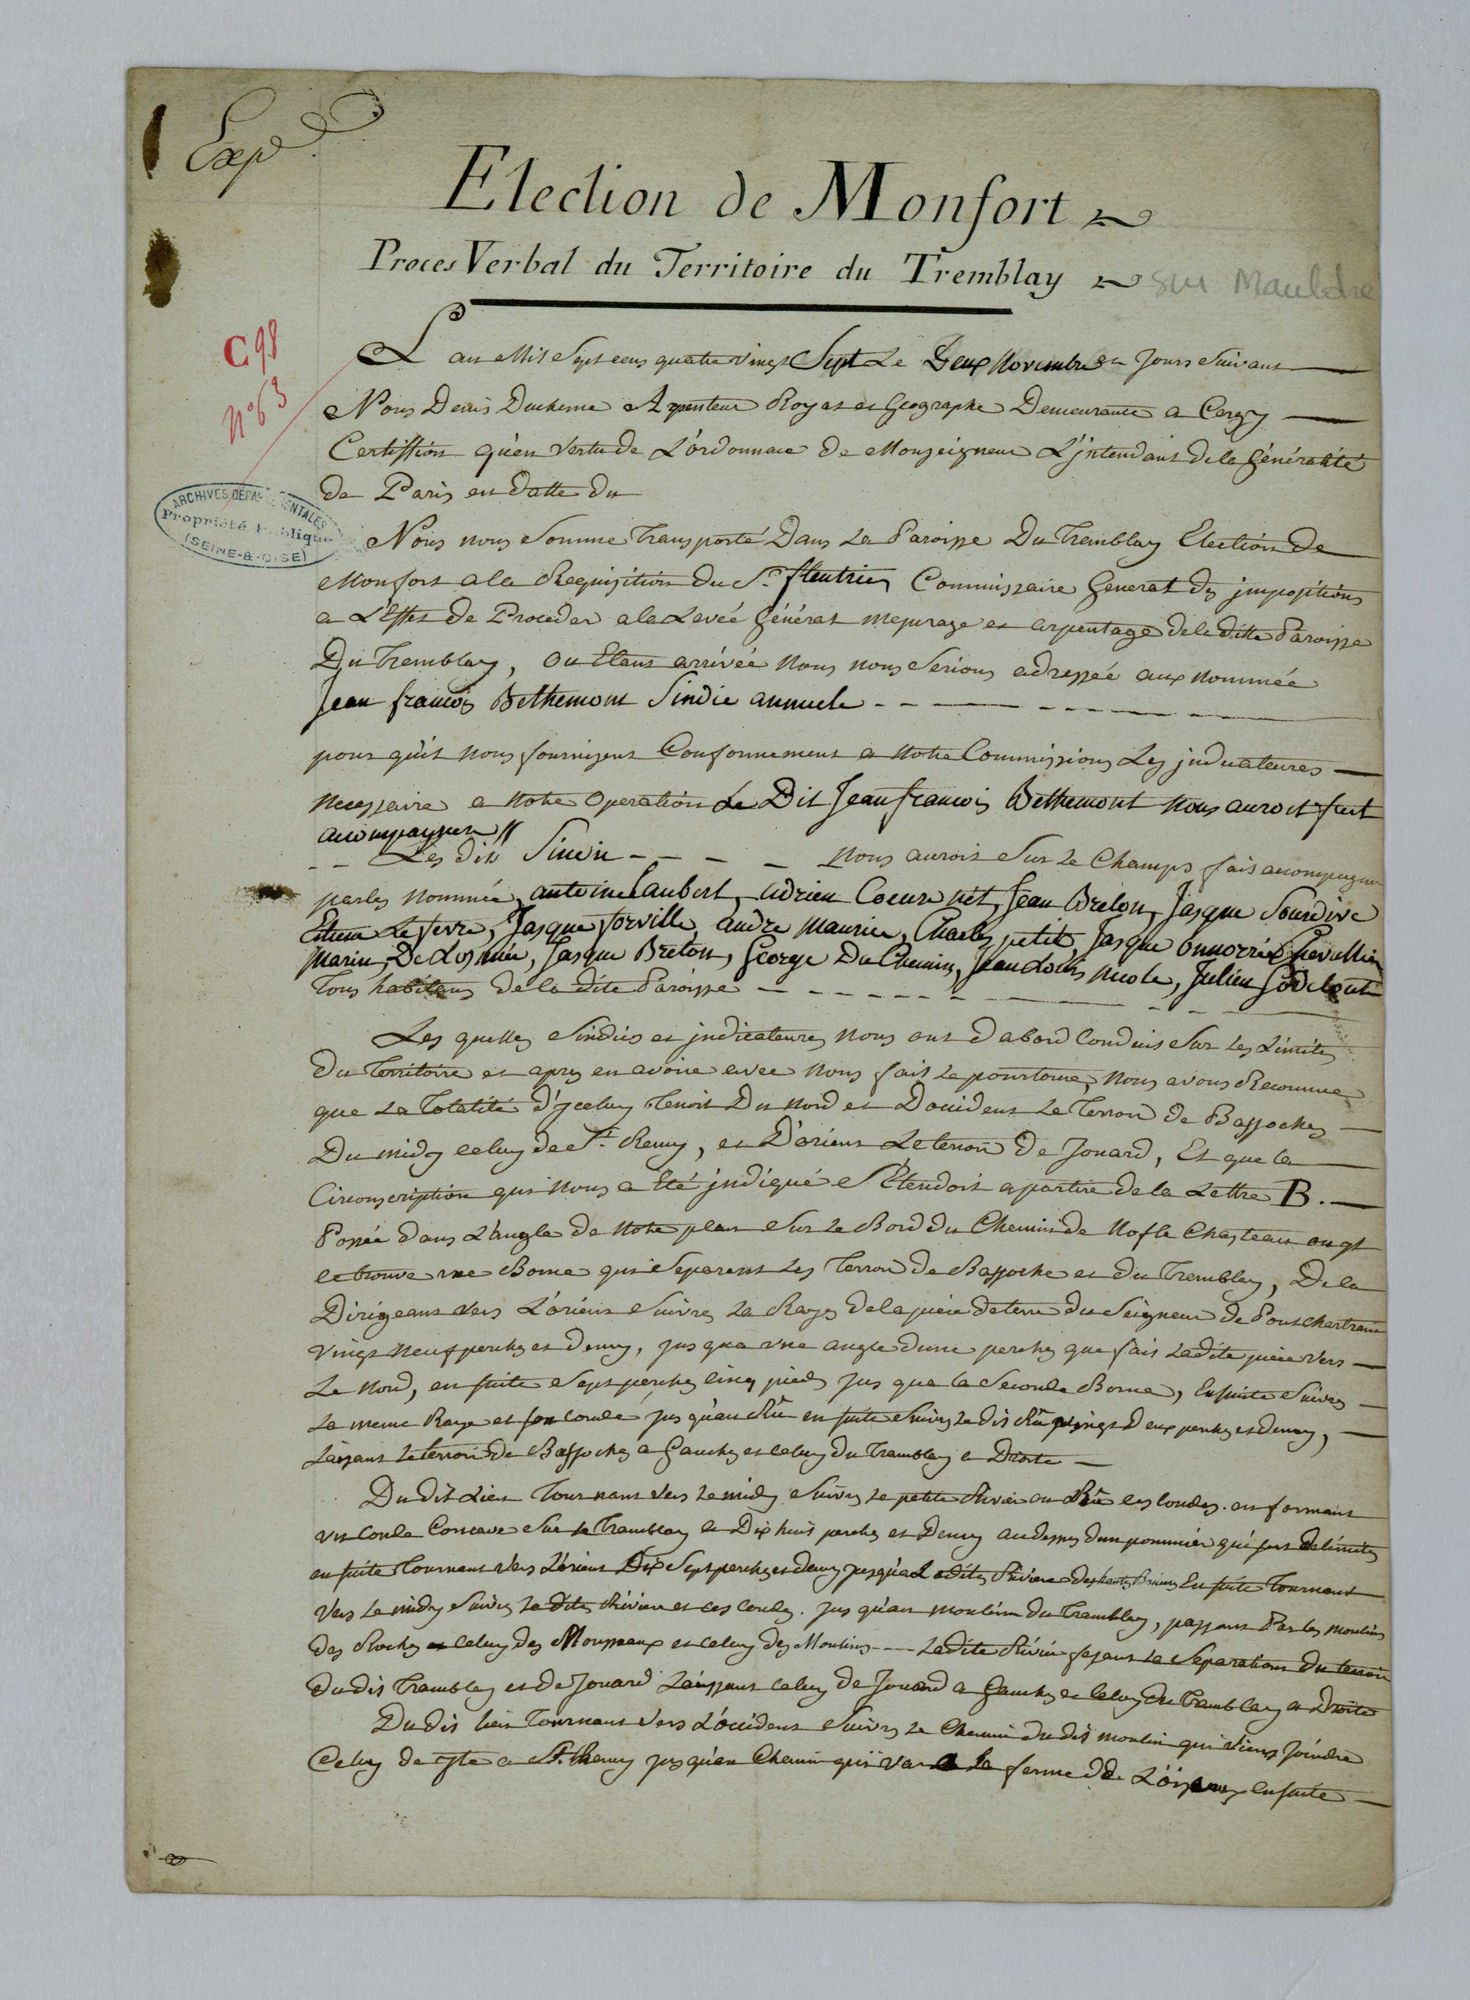 Exp^d
Election de Monfort
Proces Verbal du Territoire du Tremblay sur Mauldre
C 98
N° 63
ARCHIVES DÉPARTEMENTALES
Propriété Publique
(SEINE-&-OISE)
L'an Mil Sept cens quatre vingt Sept Le Deux Novembre et Jours Suivant
Nous Denis Duchesne Arpenteur Royal et Geographe Demeurante a Cergy
Certiffion qu'en vertu de L'ordonnace de Monseigneur L'jntendant de la Généralité
de Paris en datte du
Nous nous Somme Transporté Dans La Paroisse Du Tremblay Election de
Monfort a la Requisition du S.r Commissaire General des jmpositions
a L'Effet de Proceder a la Levéé Général mesurage et arpentage de la ditte Paroisse
Du Tremblay, ou Etant arrivéé Nous nous Serions adresséé aux nommée
Jean francois Bethemont Sindic annuele
pour qu'il nous fournissent Conformement a Notre Commissions Les jndicateures
necessaire a notre Operation Le Dit Jean francois Bethemont nous auroit fait
acompagner
Les dit Sindic nous aurois Sur Le Champs fait acompagner
par les nommée antoine Jaubert, adrien Coeuret, Jean Breton, Jasque Sourdive
Etienne Le fevre, Jasque forville, andre maurice, Charles petit, Jasque onnorré Chevallier
marin De Losmée, Jasque Breton, George Du Chemin, Jean Louis nicole, Julien
Tous habitans de la dite Paroisse
Les quelles Sindics et jndicateures nous ont d'abord Conduis Sur Les Limites
du Territoire et apres en avoire avec nous fait Le pourtoure, nous avons Reconnue
que La Totalité d'jceluy Tenoit Du Nord et D'occident Le Terroir de Bassoches
Du midy celuy de S.t Remy, et D'orient Le terroir De Jouard, Et que la
Circonscription qui Nous a Eté jndiqué S'Etendoit apartire de la Lettre B.
Posée dans L'angle de Notre plan Sur Le Bord du Chemin de Nofle Chasteau ou jl
ce trouve une Borne qui Separent Les Terroir de Bassoche et du Tremblay, De la
Dirigeant vers L'orient Suivres La Raye de la pièce de terre du Seigneur de Pontchartrain
vingt neuf perches et demy, jusqua une angle d'une perches que fait Ladite pièce vers
Le Nord, en suite Sept perches cinq pieds jus que la Seconde Borne, Ensuite Suivre
La meme Raye et son Coude jus qu'au Rû en suite Suivres Le dit Rû vingt Deux perches et demy,
Laissant Le terroir de Bassoches a Gauche et celuy du Tramblay a Droite
Du dit Lieu Tournant vers Le midy Suivres Le petite Rivier ou Rû ces Coudes. en formant
un Coude Concave Sur Le Tramblay a Dix huit perches et Demy audessus d'un pommier qui sert de limites
en suite Tournant vers L'orient Dix Sept perches et demy jusqu'a Ladite Riviere Ensuite Tournant
vers Le midy Suivres La dite Rivière et ces Coudes. Jus qu'au moulin du Tramblay, passant Par les moulins
des Roches et celuy des Mousseaux et celuy des Moulins Ladite Rivier fesant La Separations du terroir
Du dit Tramblay et de Jouard Laissant celuy de Jouard a Gauche et celuy du Tramblay a Droite
Du dit lieu Tournant vers L'occident Suivres Le Chemin du dit moulin qui viens Joindre
Celuy de a S.t Remy jusqu'au Chemin qui va a La ferme de ensuite